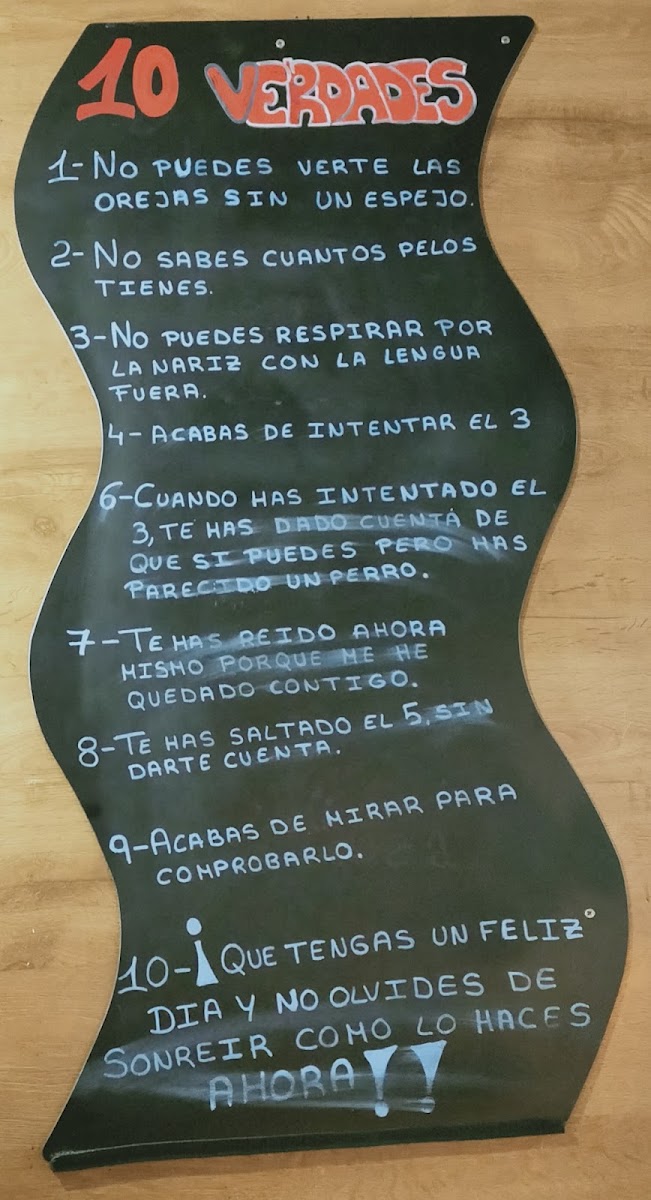 10 VERDADES
1-NO PUEDES VERTE LAS
OREJAS SIN UN ESPEJO.
2-NO SABES CUANTOS PELOS
TIENES.
3-NO PUEDES RESPIRAR POR
LA NARIZ CON LA LENGUA
FUERA.
4-ACABAS DE INTENTAR EL 3
6-CUANDO HAS INTENTADO EL
3, TE HAS DADO CUENTA DE
QUE SI PUEDES PERO HAS
PARECIDO UN PERRO.
7-TE HAS REIDO AHORA
MISMO PORQUE ME HE
QUEDADO CONTIGO.
8-TE HAS SALTADO EL 5, SIN
DARTE CUENTA.
9-ACABAS DE MIRAR PARA
COMPROBARLO.
10-¡QUE TENGAS UN FELIZ
DIA Y NO OLVIDES DE
SONREIR COMO LO HACES
AHORA!!